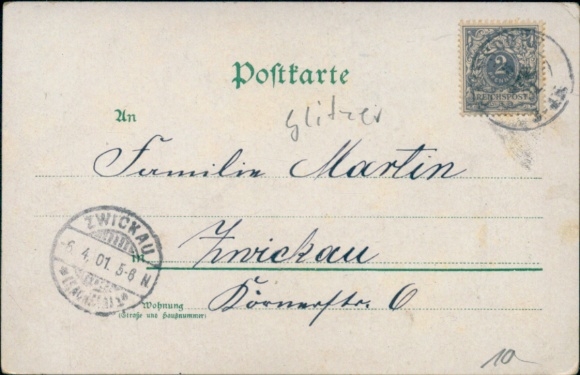 Postkarte
2
REICHSPOST
An
Glitzer
Familie Martin
ZWICKAU
-6.4.01. 5-6 N.
in Zwickau
Körnerstr. 6
Wohnung
(Straße und Hausnummer)
10